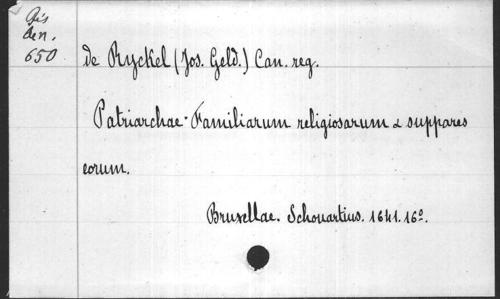 Gis
den.
650
de Ryckel (Jos. Geld.) Can. reg.
Patriarchae Familiarum religiosarum & suppares
eorum.
Bruxellae. Schouartius. 1641. 16º.